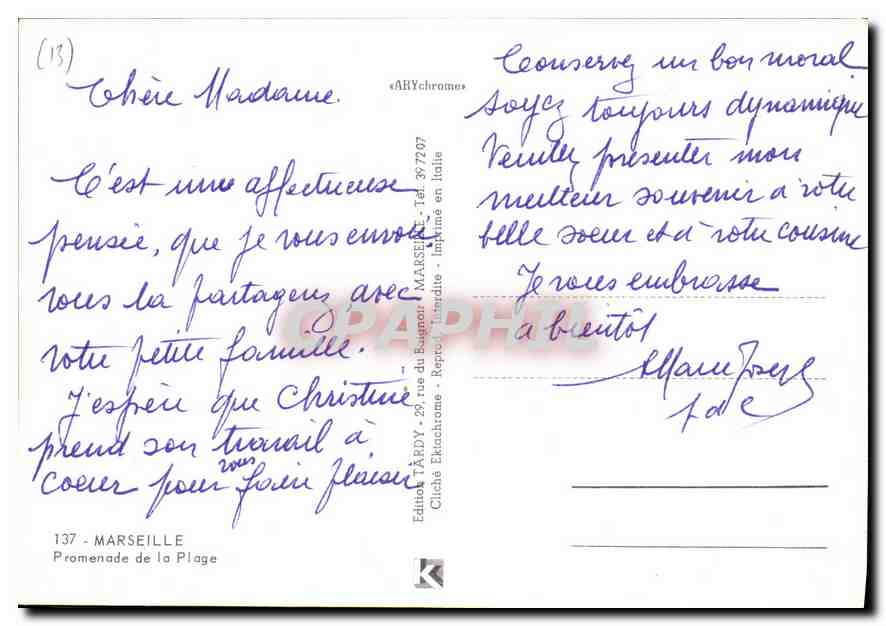 (13)
Chère Madame.
C'est une affectueuse
pensée, que je vous envoie,
vous la partagerez avec
votre petite famille.
J'espère que Christine
prend son travail à
coeur pour vous faire plaisir
137 - MARSEILLE
Promenade de la Plage
«ARYchrome»
Edition TARDY - 29, rue du Baignoir - MARSEILLE - Tél. 397207
Cliché Ektachrome - Reprod. Interdite - Imprimé en Italie
CPAPHIL
K
Conservez un bon moral
soyez toujours dynamique
Veuillez présenter mon
meilleur souvenir à votre
belle soeur et à votre cousine
Je vous embrasse
a bientôt